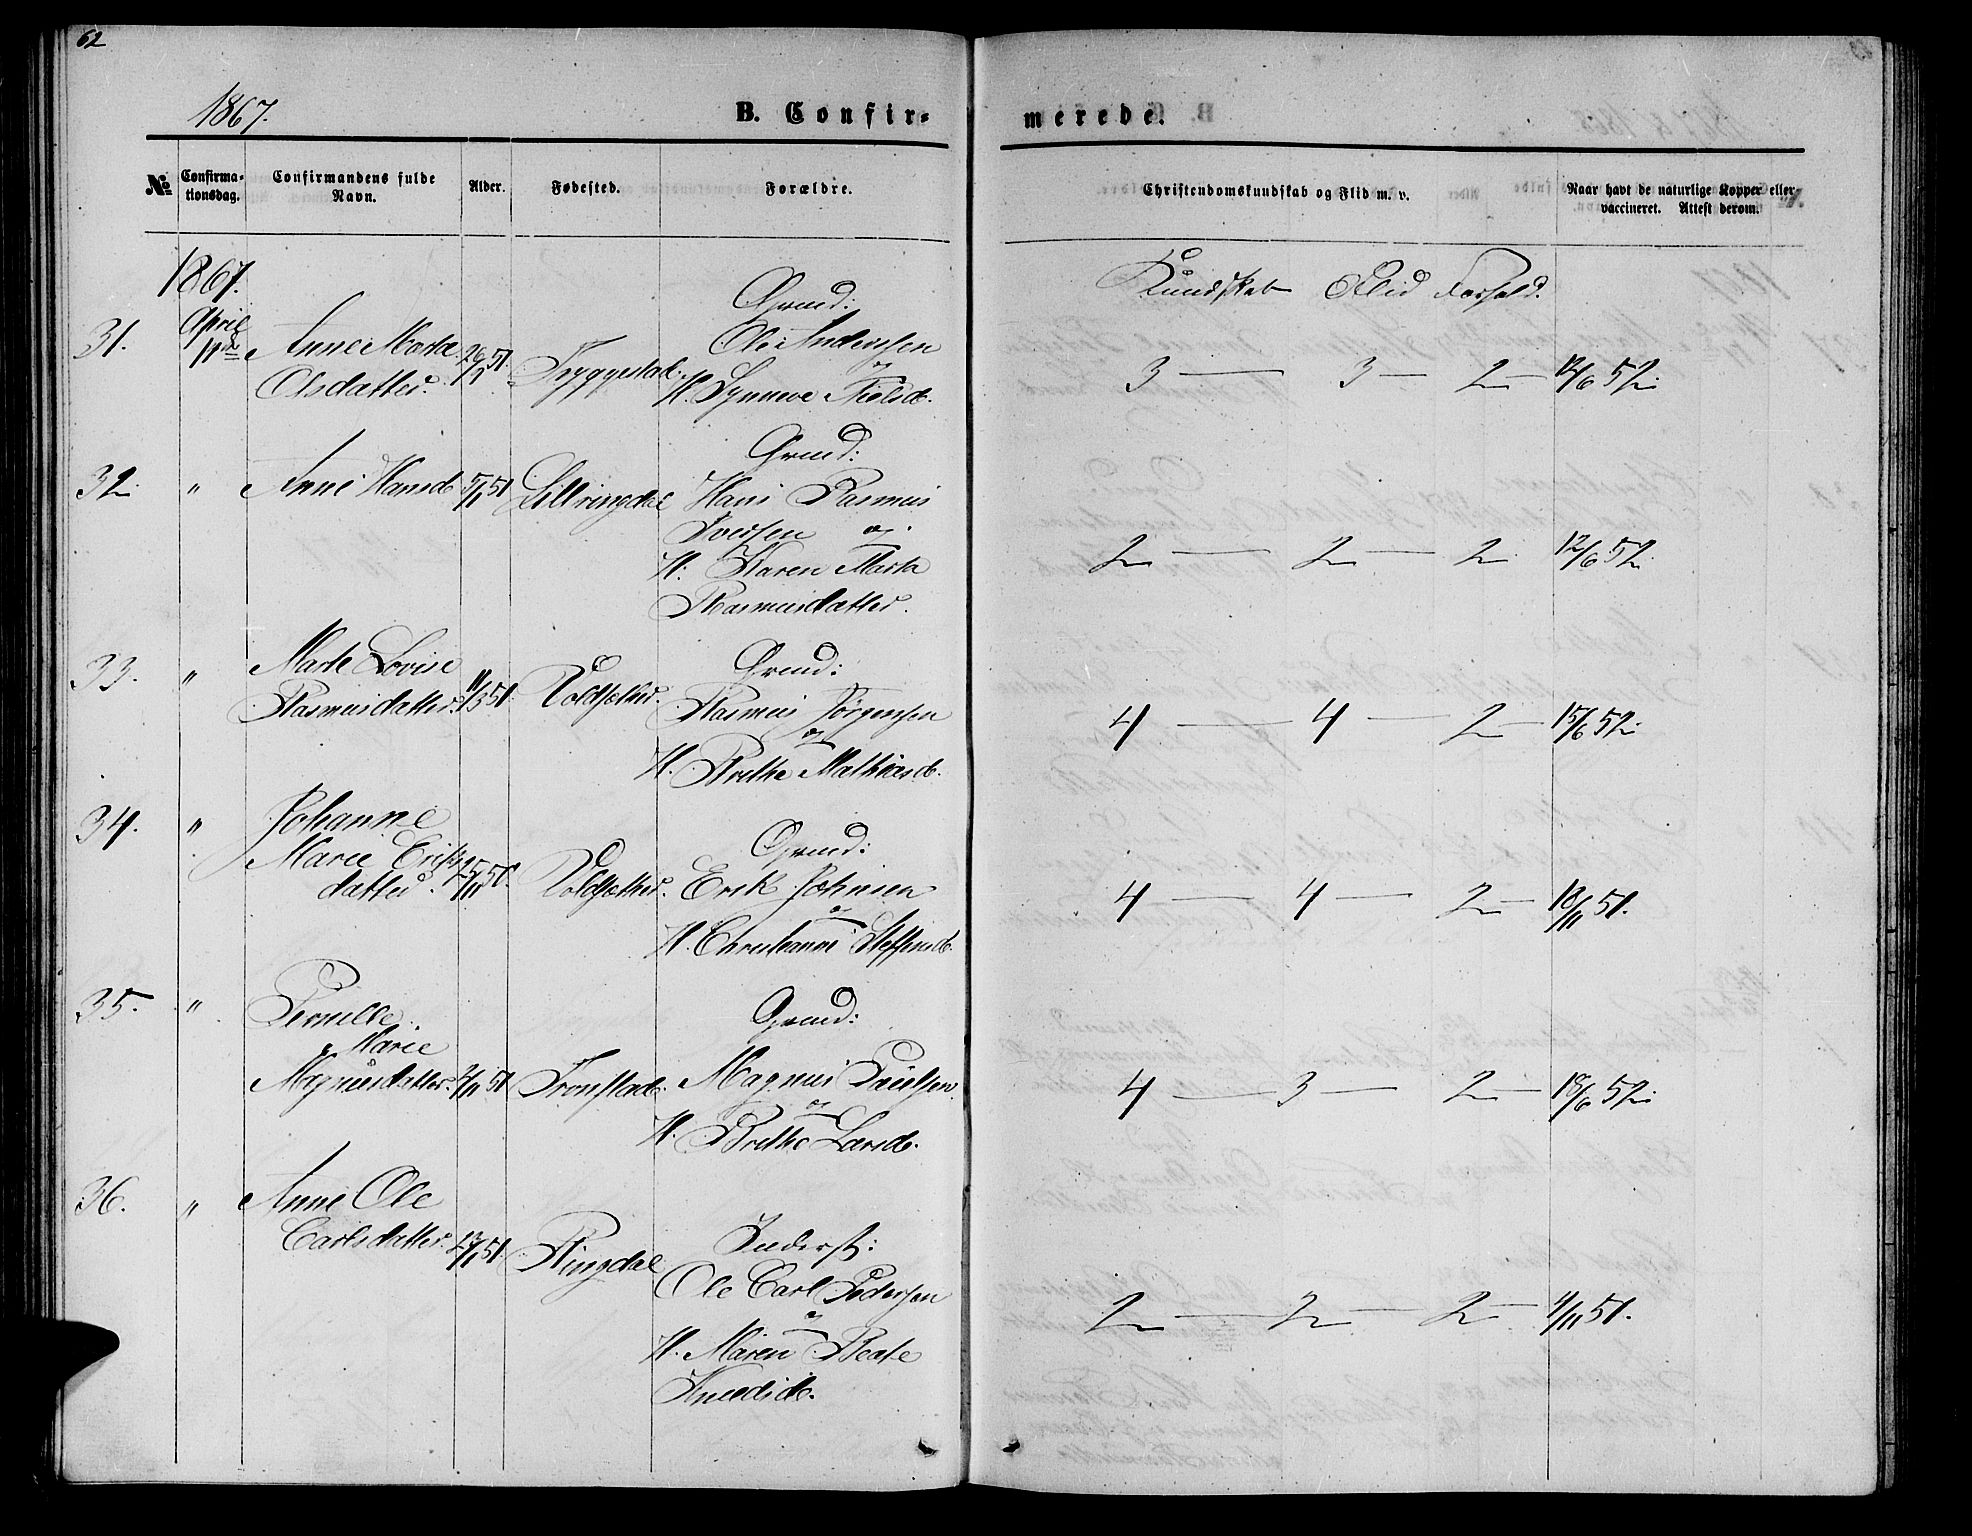 62
1867.
B. Confir-
merede.
No
Confirma-
tionsdag.
Confirmandens fulde
Navn.
Alder.
Fødested.
Forældre.
Christendomskundskab og Flid m. v.
Naar havt de naturlige Kopper eller
vaccineret. Attest derom.
1867.
April
Kundskab Flid Forhold.
31.
Anne Marta
Olsdatter.
Tryggestad.
Grmd:
Ole Anderssen
og
H. Synneve Nielsd.
3 — 3 — 2 — 12/6 52.
32.
"
Anne Hansd.
5/1 51
Lillringdal
Grmd:
Hans Rasmus
Iversen og
H. Karen Marta
Rasmusdatter.
2 — 2 — 2. 12/6 52.
33.
"
Marte Lovise
Rasmusdatter.
11/3 51.
Voldsæther.
Grmd:
Rasmus Jörgensen
og
H. Brithe Mathiasd.
4 — 4 — 2 — 15/6 52.
34.
"
Johanne
Marie Eriks
datter.
25/11 51.
Voldsæther.
Grmd:
Erik Johnsen
og
H. Christianne Steffensd.
4 — 4 — 2 — 18/11 51.
35.
"
Pernille
Marie
Magnusdatter.
Tronstad.
Grmd:
Magnus Poulsen
og
H. Brithe Larsd.
4 — 3 — 2 — 18/6 52.
36.
"
Anne Ole
Carlsdatter.
Ringdal
Inderst:
Ole Carl Pedersen
og
H. Maren Beate
Knudsd.
2 — 2 — 2 — 4/11 51.